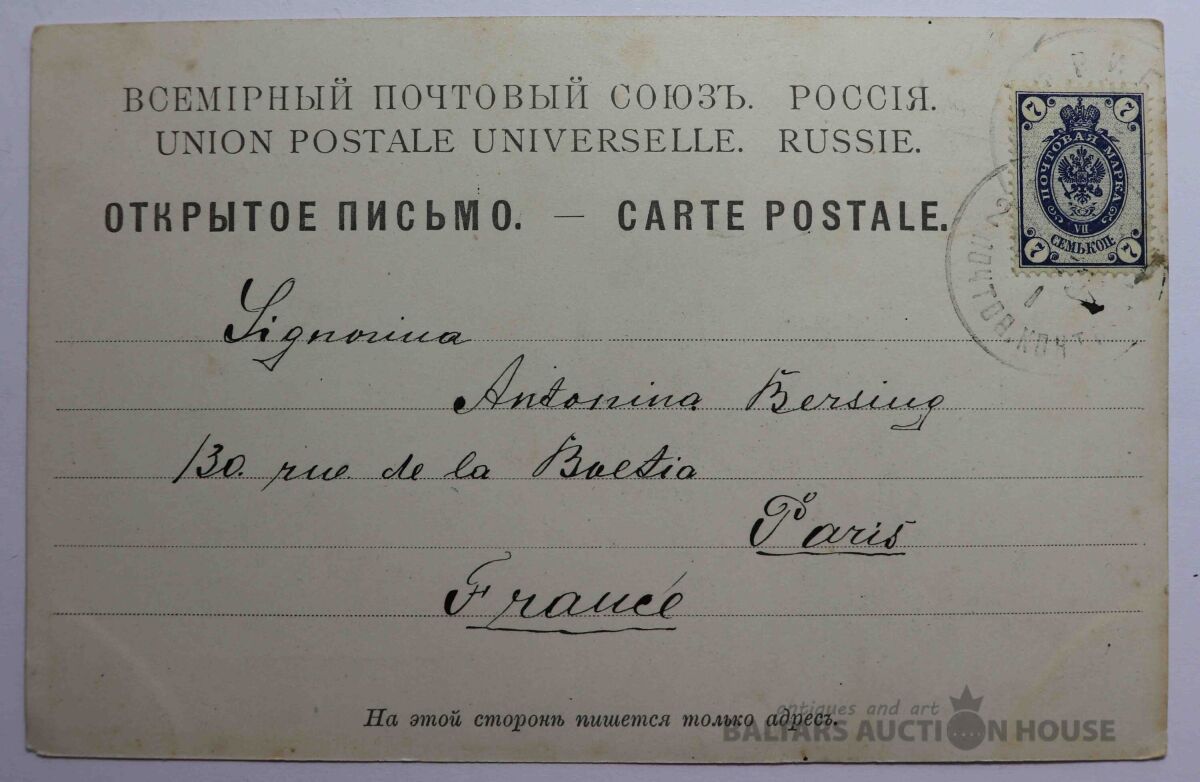 ВСЕМІРНЫЙ ПОЧТОВЫЙ СОЮЗЪ. РОССІЯ.
UNION POSTALE UNIVERSELLE. RUSSIE.
ОТКРЫТОЕ ПИСЬМО. — CARTE POSTALE.
7 7
ПОЧТОВАЯ МАРКА
VII
СЕМЬ КОП.
7 7
Signorina
Antonina Bersing
130. rue de la Boetia
Paris
France
На этой сторонѣ пишется только адресъ.
antiques and art
BALTARS AUCTION HOUSE